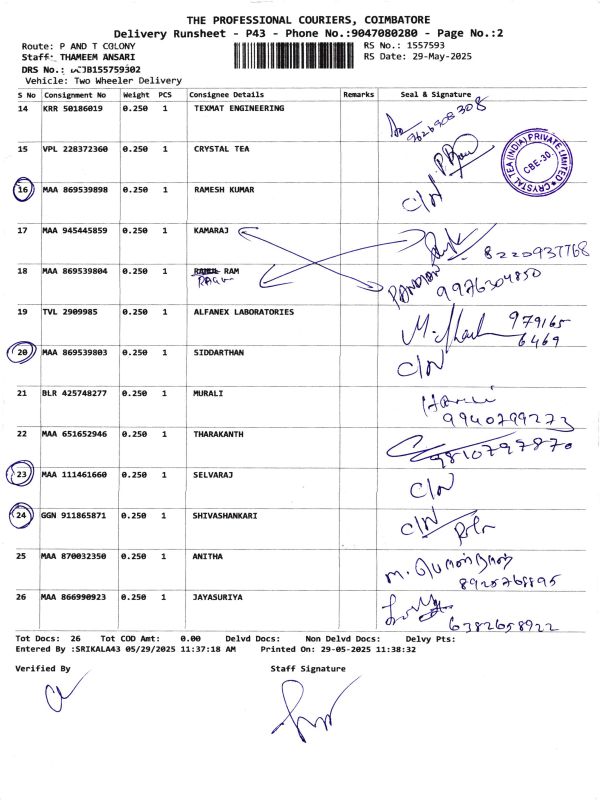 THE PROFESSIONAL COURIERS, COIMBATORE
Delivery Runsheet - P43 - Phone No.:9047080280 - Page No.:2
Route: P AND T COLONY
RS No.: 1557593
Staff: THAMEEM ANSARI
RS Date: 29-May-2025
DRS No.: DCJB155759302
Vehicle: Two Wheeler Delivery
S No Consignment No Weight PCS Consignee Details Remarks Seal & Signature
14 KRR 50186019 0.250 1 TEXMAT ENGINEERING 9626908308
15 VPL 228372360 0.250 1 CRYSTAL TEA
CRYSTAL TEA (INDIA) PRIVATE LIMITED
CBE-30.
16 MAA 869539898 0.250 1 RAMESH KUMAR C/N
17 MAA 945445859 0.250 1 KAMARAJ 8220937768
18 MAA 869539804 0.250 1 RAM PANDIAN
9976304850
19 TVL 2909985 0.250 1 ALFANEX LABORATORIES 979165
6469
20 MAA 869539803 0.250 1 SIDDARTHAN C/N
21 BLR 425748277 0.250 1 MURALI
9940799273
22 MAA 651652946 0.250 1 THARAKANTH 9810797870
23 MAA 111461660 0.250 1 SELVARAJ C/N
24 GGN 911865871 0.250 1 SHIVASHANKARI C/N
25 MAA 870032350 0.250 1 ANITHA
8925768895
26 MAA 866990923 0.250 1 JAYASURIYA
6382658922
Tot Docs: 26 Tot COD Amt: 0.00 Delvd Docs: Non Delvd Docs: Delvy Pts:
Entered By :SRIKALA43 05/29/2025 11:37:18 AM Printed On: 29-05-2025 11:38:32
Verified By Staff Signature